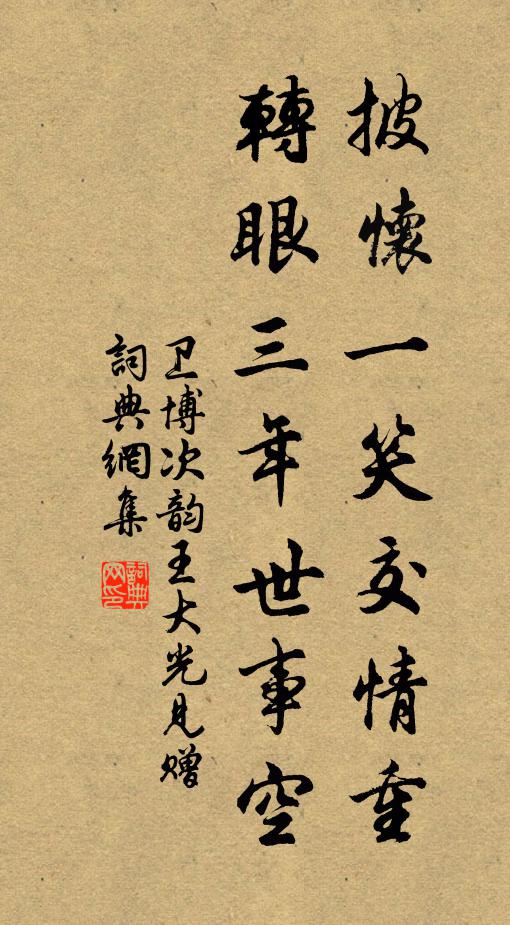 披懷一笑交情重
轉眼三年世事空
卫博次韵王大光見赠
詞典網集
詞典网印